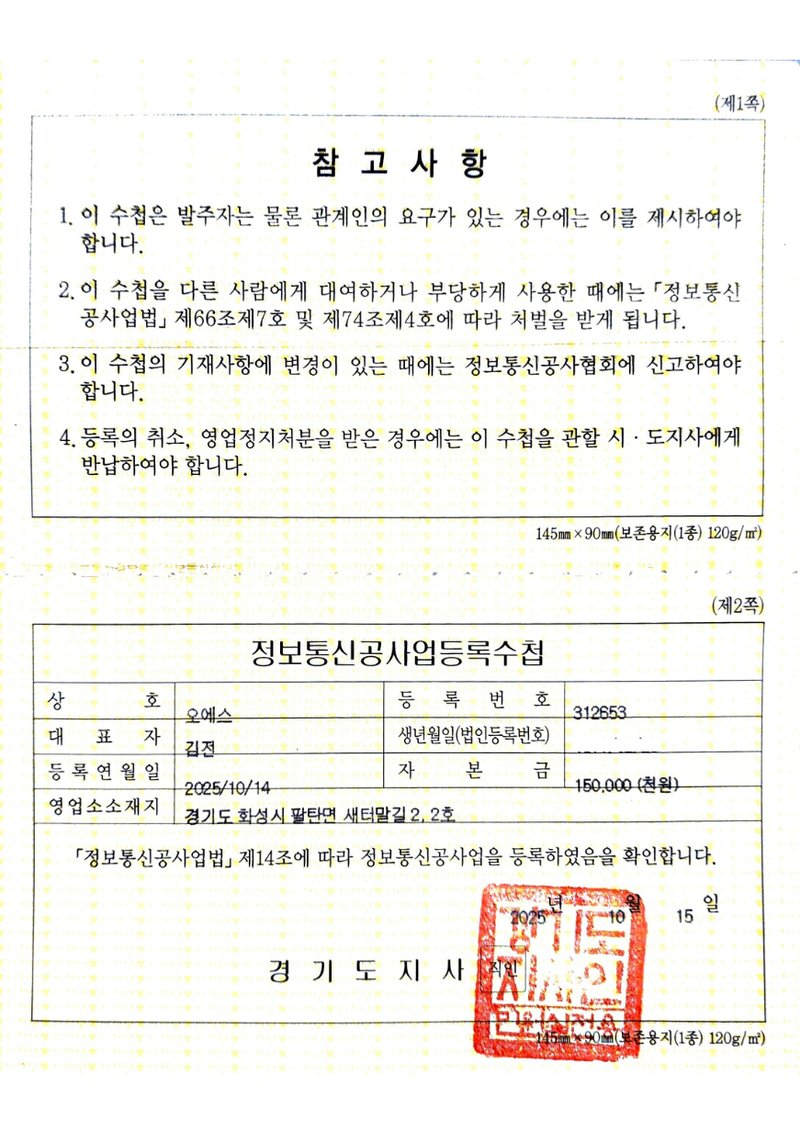 (제1쪽)
참 고 사 항
1. 이 수첩은 발주자는 물론 관계인의 요구가 있는 경우에는 이를 제시하여야
합니다.
2. 이 수첩을 다른 사람에게 대여하거나 부당하게 사용한 때에는 「정보통신
공사업법」 제66조제7호 및 제74조제4호에 따라 처벌을 받게 됩니다.
3. 이 수첩의 기재사항에 변경이 있는 때에는 정보통신공사협회에 신고하여야
합니다.
4. 등록의 취소, 영업정지처분을 받은 경우에는 이 수첩을 관할 시·도지사에게
반납하여야 합니다.
145㎜×90㎜(보존용지(1종) 120g/㎡)
(제2쪽)
정보통신공사업등록수첩
상 호 오에스 등 록 번 호 312653
대 표 자 김전 생년월일(법인등록번호)
등록연월일 2025/10/14 자 본 금 150,000 (천원)
영업소소재지 경기도 화성시 팔탄면 새터말길 2, 2호
「정보통신공사업법」 제14조에 따라 정보통신공사업을 등록하였음을 확인합니다.
2025 년 10 월 15 일
경 기 도 지 사 직인
경기도
지사인
민원실전용
145㎜×90㎜(보존용지(1종) 120g/㎡)